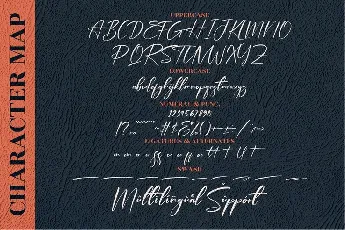 CHARACTER MAP
UPPERCASE
ABCDEFGHIJKLMNO
PQRSTUVWXYZ
LOWERCASE
abcdefghijklmnopqrstuvwxyz
NUMERAL & PUNC
LIGATURES & ALTERNATES
SWASH
Multilingual Support